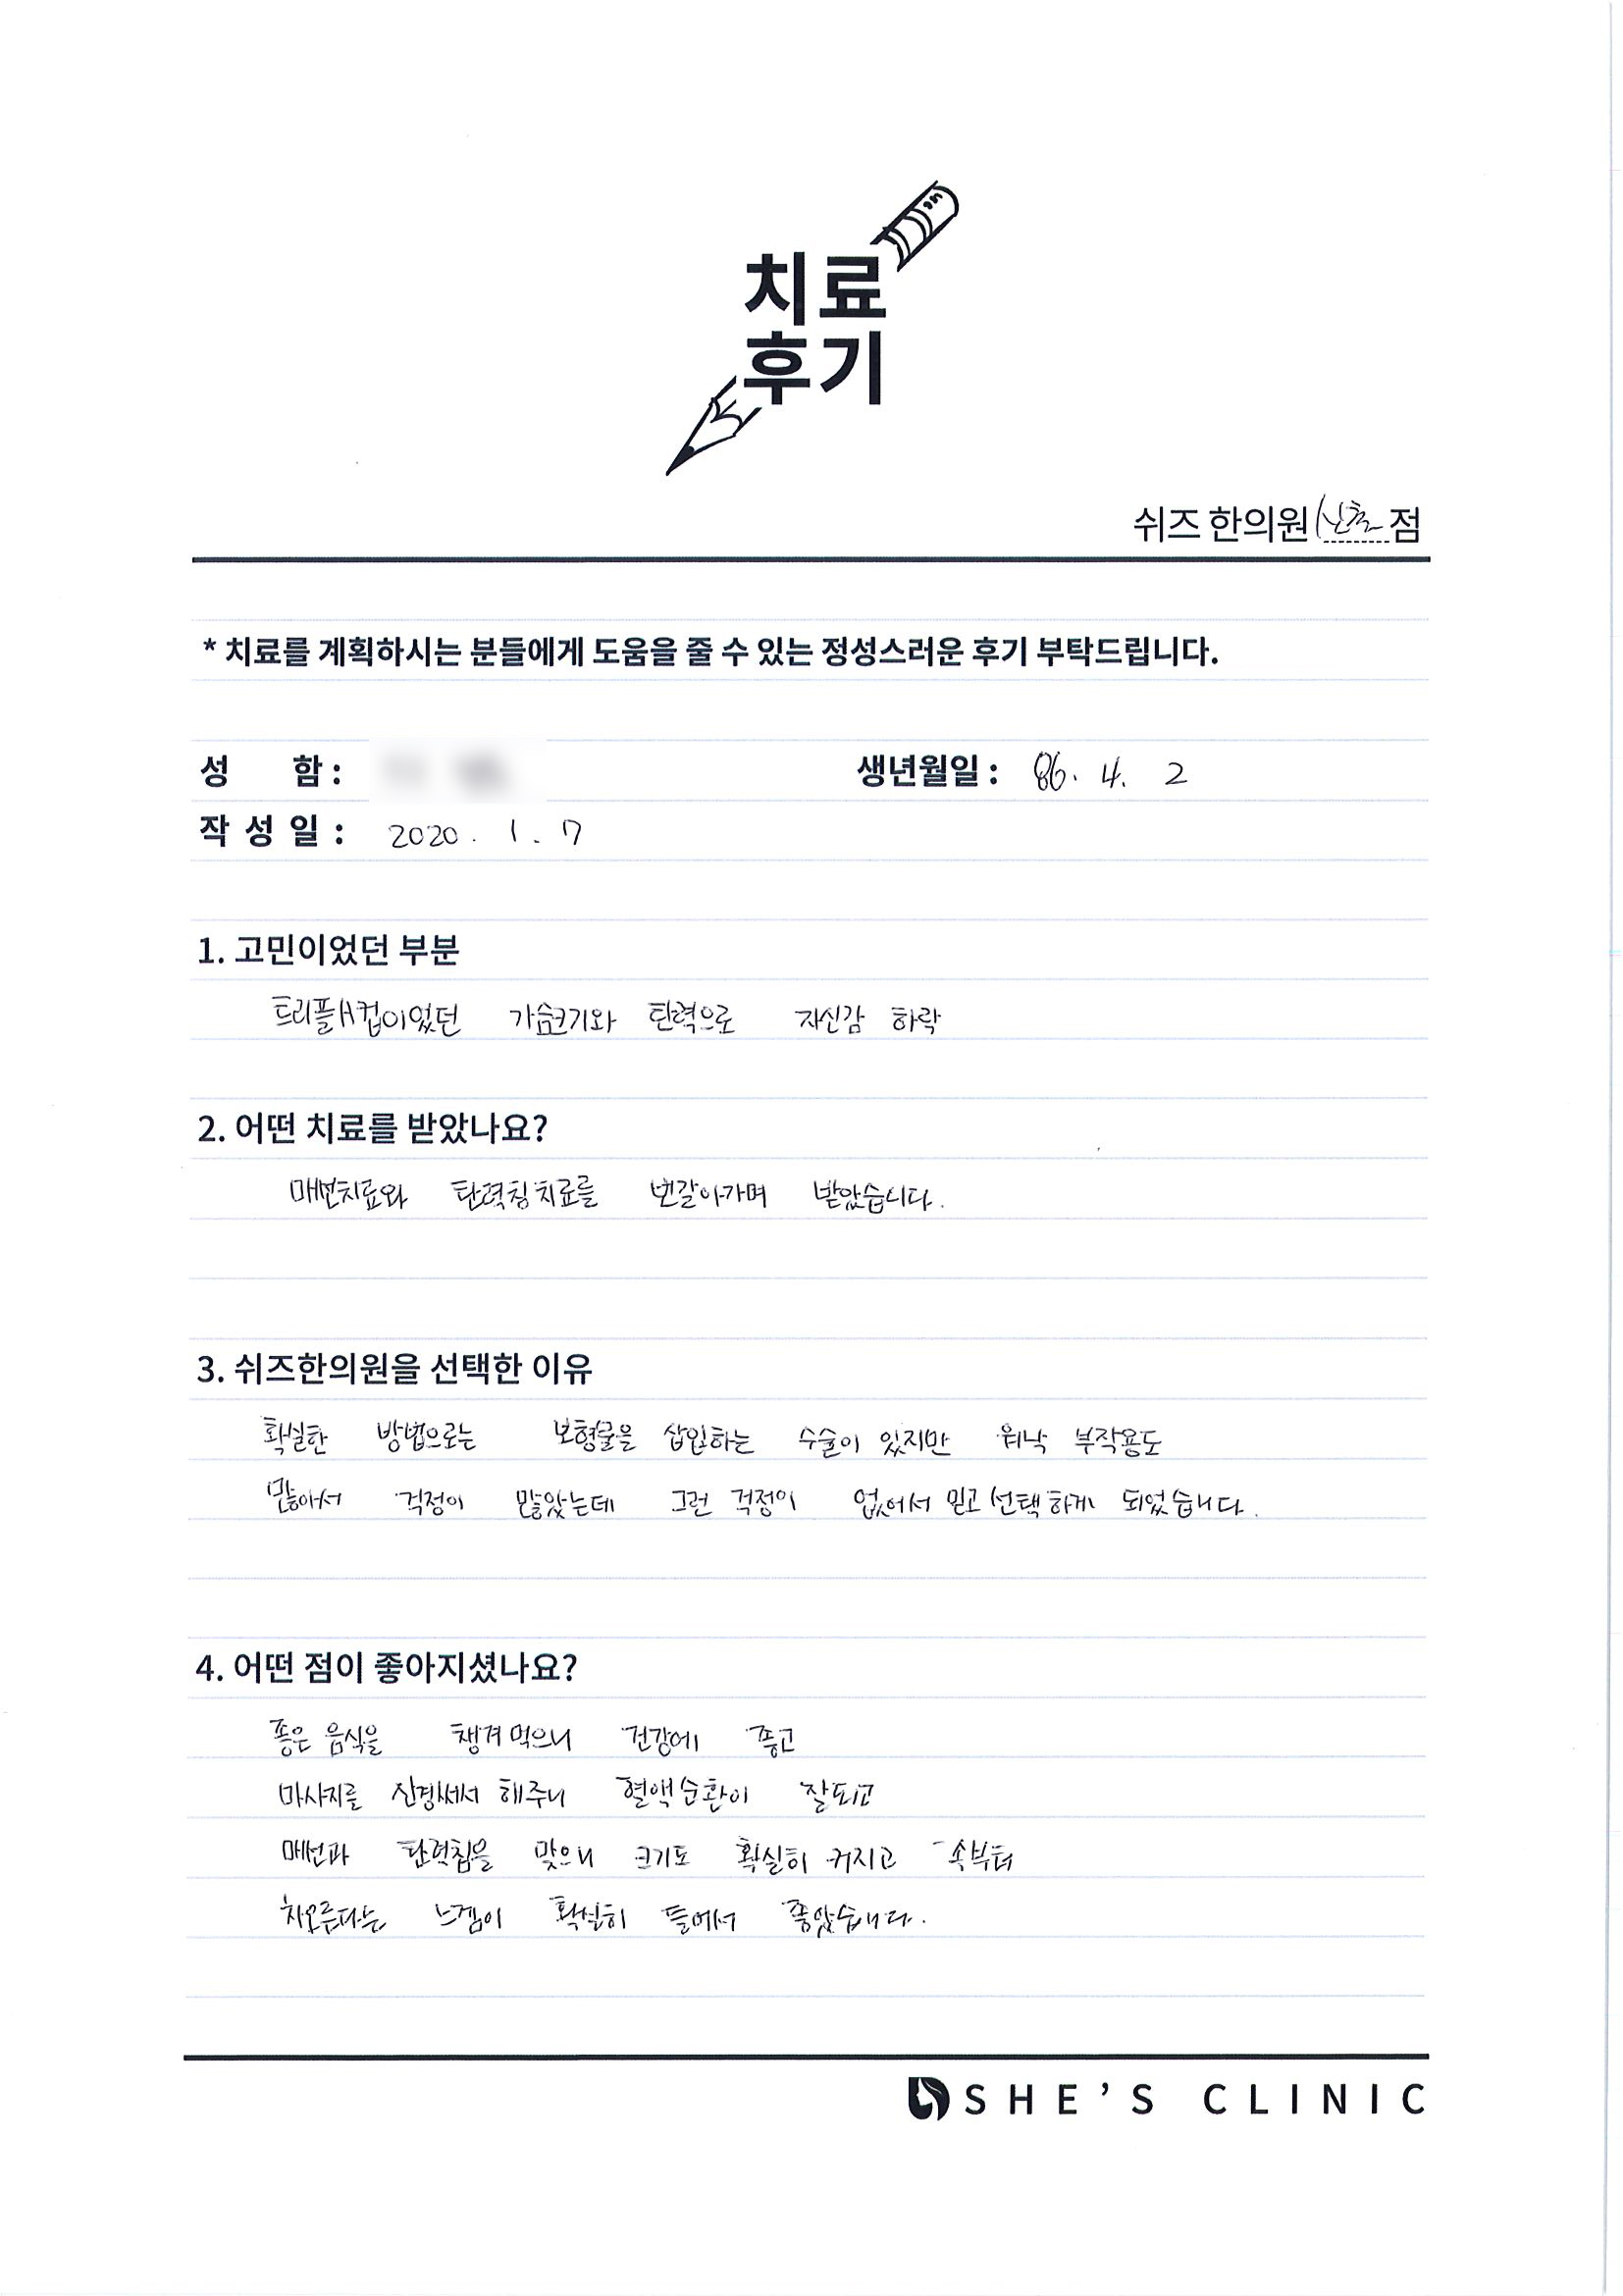 치료
후기
쉬즈 한의원 신촌점
* 치료를 계획하시는 분들에게 도움을 줄 수 있는 정성스러운 후기 부탁드립니다.
성 함 : 생년월일 : 86. 4. 2
작 성 일 : 2020. 1. 17
1. 고민이었던 부분
트리플A컵이었던 가슴크기와 탄력으로 자신감 하락
2. 어떤 치료를 받았나요?
매선치료와 탄력침치료를 번갈아가며 받았습니다.
3. 쉬즈한의원을 선택한 이유
확실한 방법으로는 보형물을 삽입하는 수술이 있지만 워낙 부작용도
많아서 걱정이 많았는데 그런 걱정이 없어서 믿고 선택하게 되었습니다.
4. 어떤 점이 좋아지셨나요?
좋은 음식을 챙겨먹으니 건강에 좋고
마사지를 신경써서 해주니 혈액순환이 잘되고
매선과 탄력침을 맞으니 크기도 확실히 커지고 속부터
차오른다는 느낌이 확실히 들어서 좋았습니다.
SHE'S CLINIC